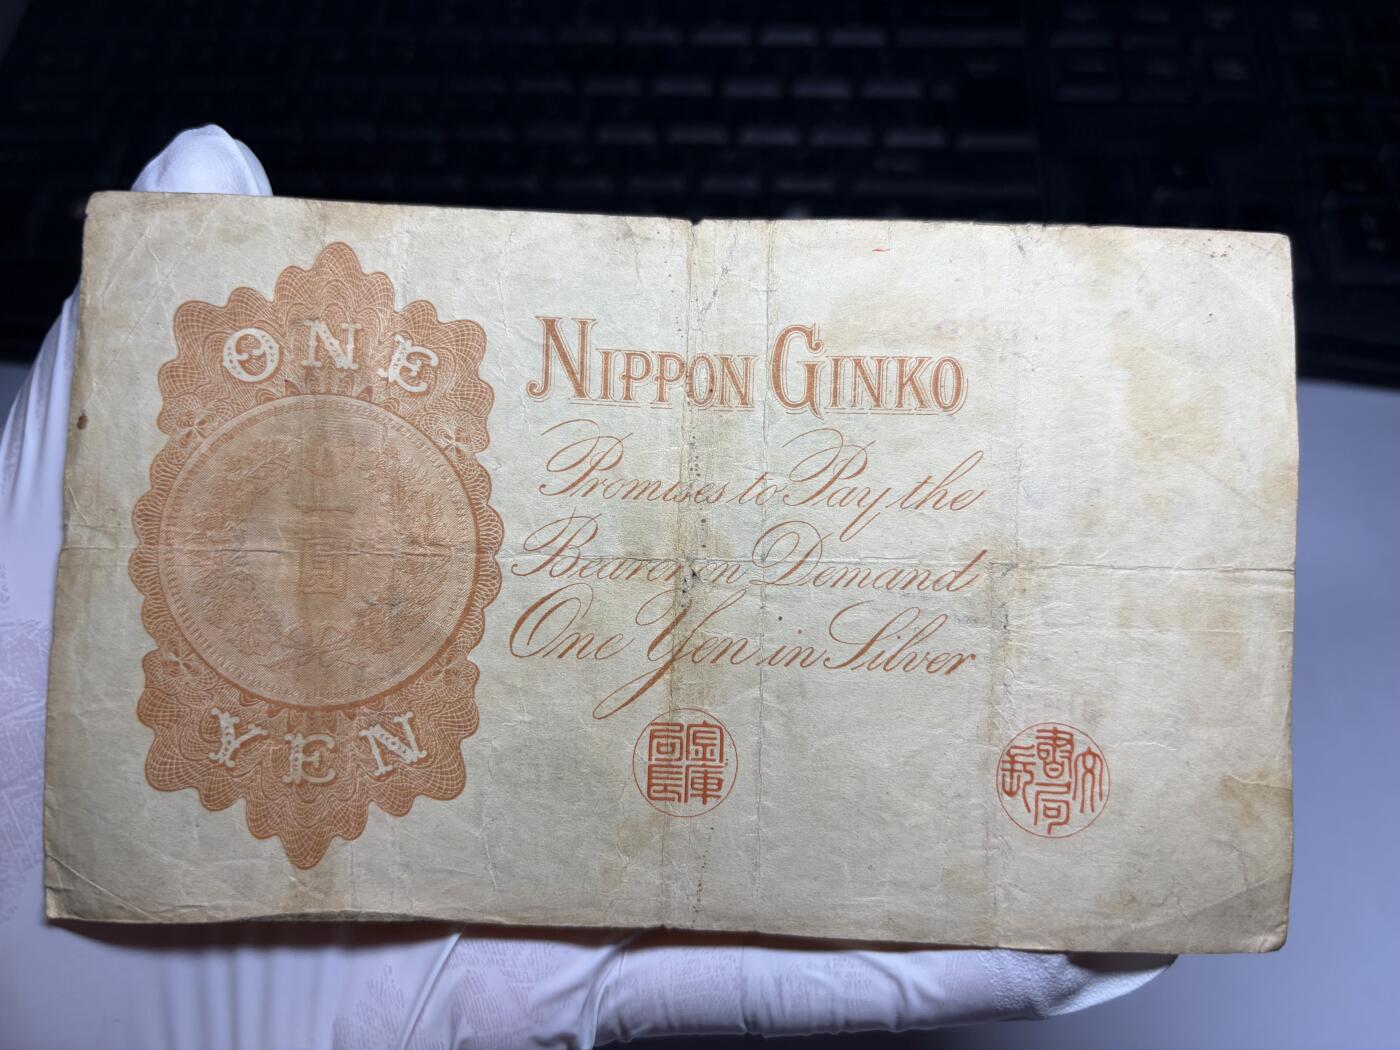 ONE
一圓
YEN
NIPPON GINKO
Promises to Pay the
Bearer on Demand
One Yen in Silver
金庫局長
文書局長